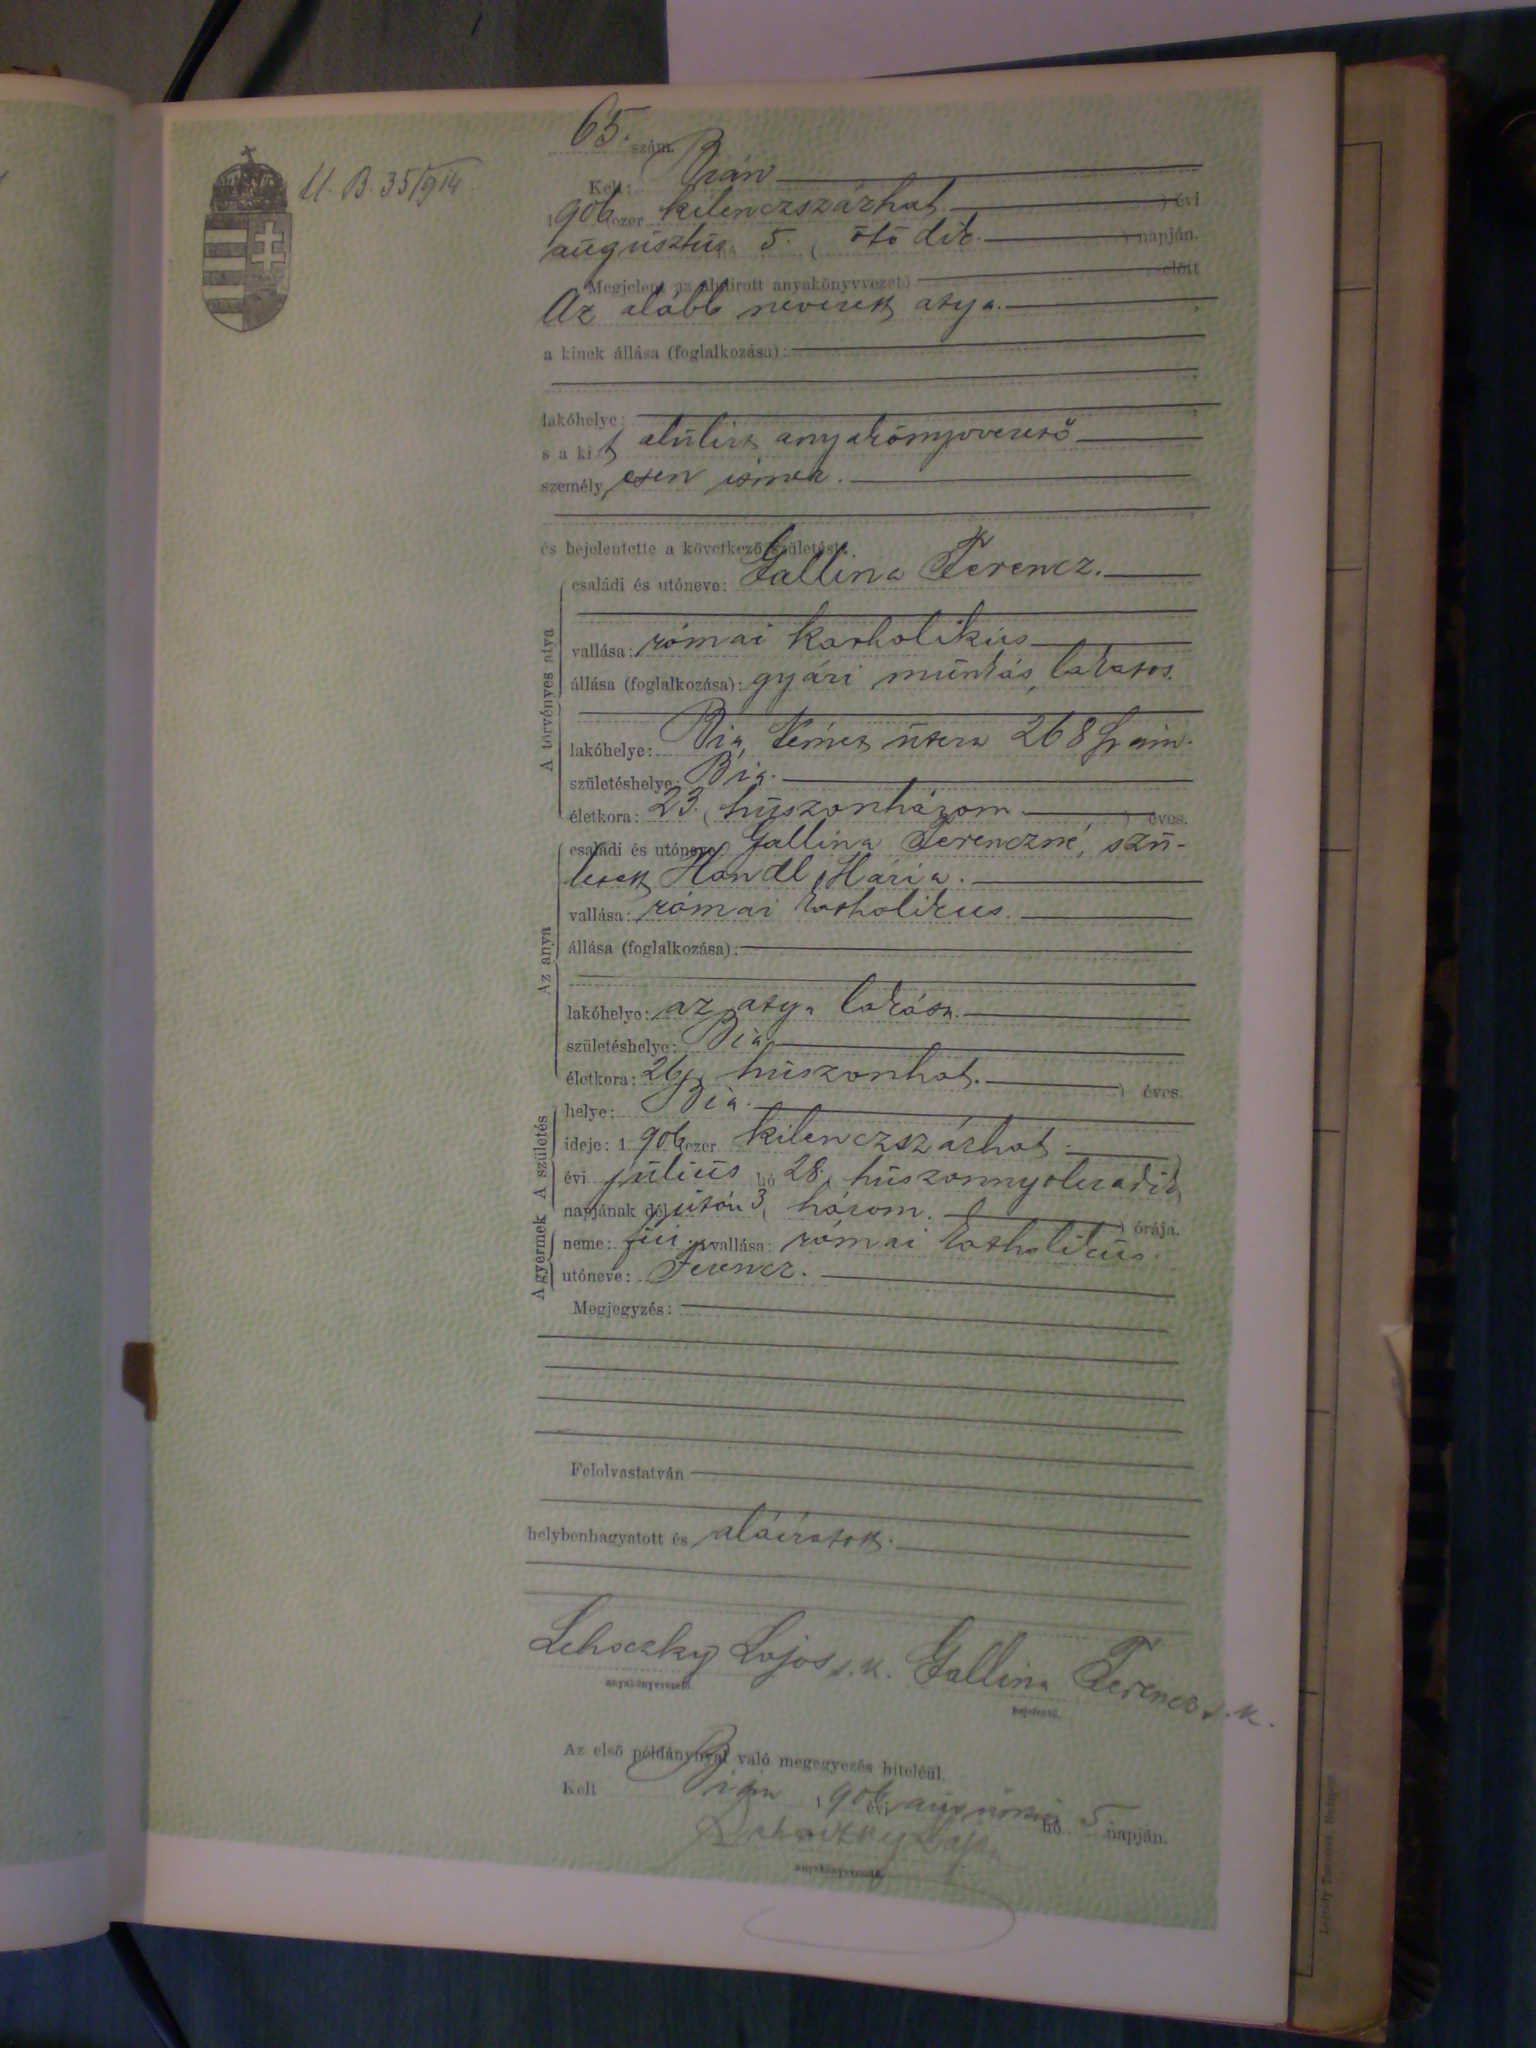 65. szám.
U. B. 35/914.
Kelt: Bián
1906 ezer kilenczszázhat ) évi
augusztus hó 5. ( ötödik. ) napján.
Megjelent az alulirott anyakönyvvezető előtt
Az alább nevezett atya.
a kinek állása (foglalkozása):
lakóhelye:
s a kit alulirt anyakönyvvezető
személyesen ismer.
és bejelentette a következő születést:
A törvényes atya
családi és utóneve: Gallina Ferencz.
vallása: római katholikus
állása (foglalkozása): gyári munkás, lakatos.
lakóhelye: Bia, Német utcza 268
születéshelye: Bia.
életkora: 23. ( huszonhárom. ) éves.
Az anya
családi és utóneve: Gallina Ferenczné, szü-
letett Handl Mária.
vallása: római katholikus.
állása (foglalkozása):
lakóhelye: az atya lakása.
születéshelye: Bia
életkora: 26 ( huszonhat. ) éves.
A születés
helye: Bia.
ideje: 1906 ezer kilenczszázhat )
évi julius hó 28. ( huszonnyolczadik
napjának délután 3 ( három. ) órája.
A gyermek
neme: fiú vallása: római katholikus.
utóneve: Ferencz.
Megjegyzés:
Felolvastatván
helybenhagyatott és aláiratott.
Lehoczky Lajos s.k. Gallina Ferencz s.k.
anyakönyvvezető. bejelentő.
Az első példánynyal való megegyezés hiteléül.
Kelt Bián 1906 évi augusztus hó 5. napján.
Lehoczky Lajos
anyakönyvvezető.